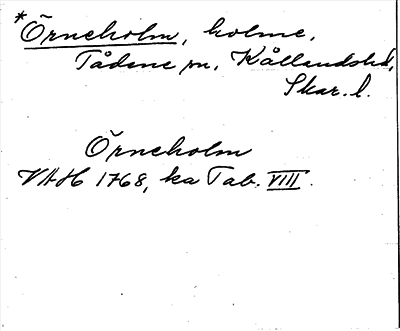 *Örneholm, holme,
Tådene sn, Kållandshd,
Skar. l.
Örneholm
VAH 1768, ka Tab. VIII.